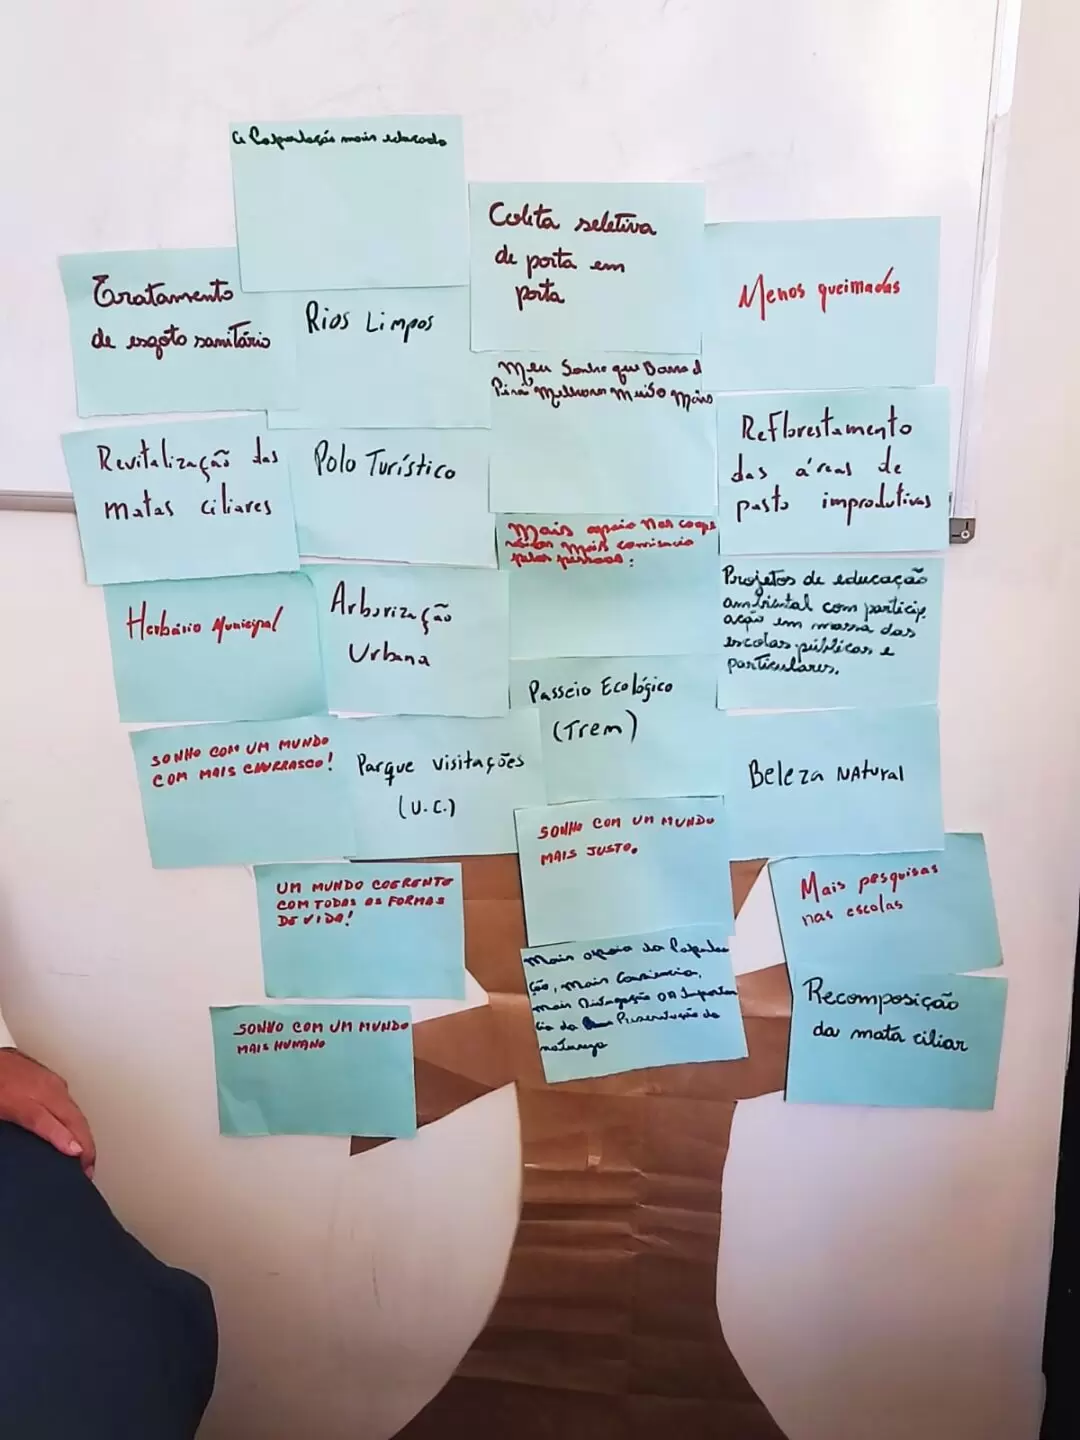 A População mais educada
Coleta seletiva
de porta em
porta
Menos queimadas
Tratamento
de esgoto sanitário
Rios Limpos
Meu Sonho que Barra d
Pirai Melhora Muito Mais
Reflorestamento
das áreas de
pasto improdutivas
Revitalização das
matas ciliares
Polo Turístico
Mais apoio nas coope
mais
pelas pessoas:
Projetos de educação
ambiental com particip.
ação em massa das
escolas públicas e
particulares.
Herbário Municipal
Arborização
Urbana
Passeio Ecológico
(Trem)
SONHO COM UM MUNDO
COM MAIS CHURRASCO!
Parque visitações
(U.C.)
Beleza Natural
SONHO COM UM MUNDO
MAIS JUSTO.
UM MUNDO COERENTE
COM TODAS AS FORMAS
DE VIDA!
Mais pesquisas
nas escolas
Mais apoio da Popula
ção, mais Consiencia,
mais Divugação da Importan
cia da Preservação da
natureza
Recomposição
da mata ciliar
SONHO COM UM MUNDO
MAIS HUMANO